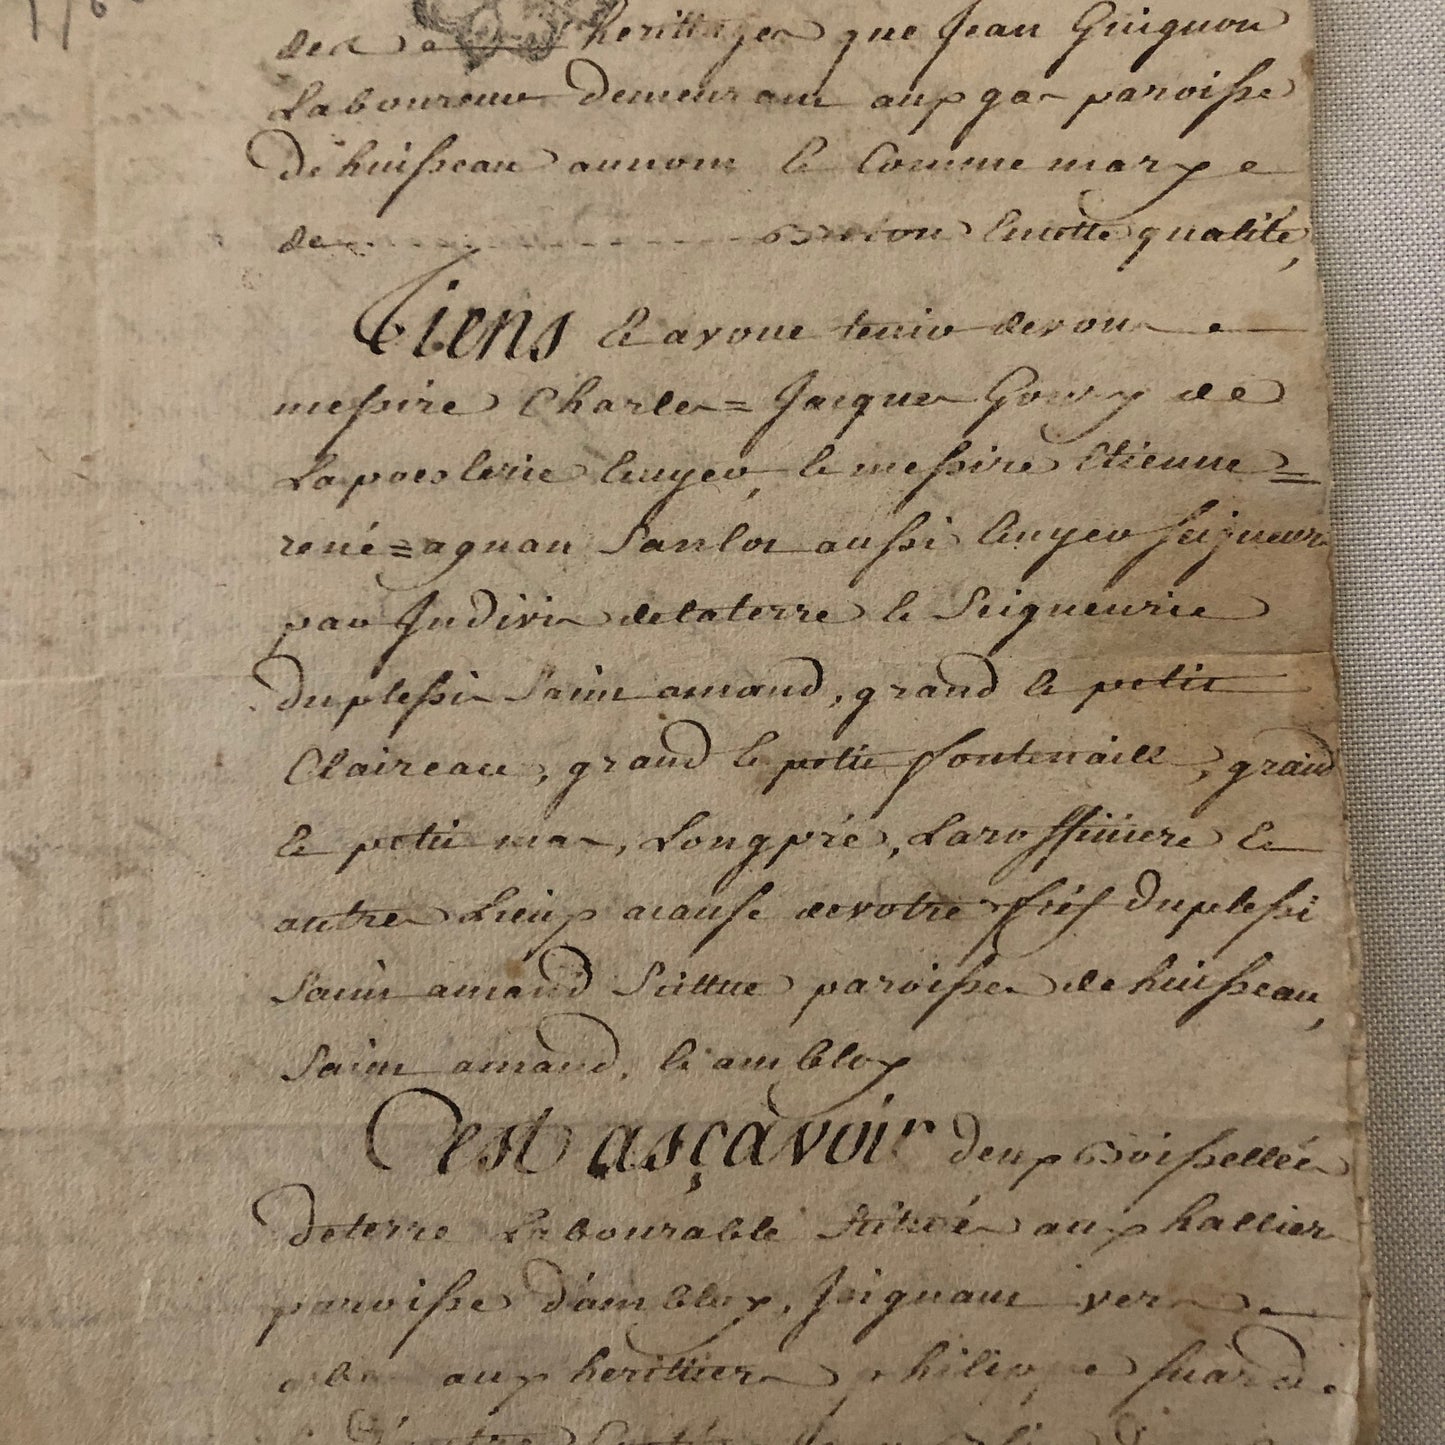 des heritages que Jean Guignon
Laboureur demeurant aux gas paroisse
de huisseau aunom Et Comme marye
de Breton Enotte qualité,
Tiens Et avoue tenir devous
messire Charles = Jacques Goury de
Lapoesterie Ecuyer, Et messire Etienne =
rené = agnan Sanlot aussi Ecuyer seigneurs
par Indivis delaterre Et Seigneurie
duplessis Saint amand, grand Et petit
Claireau, grand Et petit fontenaille, grand
Et petit mas, Longpré, Laroussiniere Et
autres Lieux acause devotre fief Duplessi
Saint amand Scittue paroisses de huisseau,
Saint amand, Et ambloy
Cest asçavoir deux Boissellées
deterre Labourable Scituées aux halliers
paroisse d'ambloy, Joignant vers
aux heritiers philippe huard
D'autre